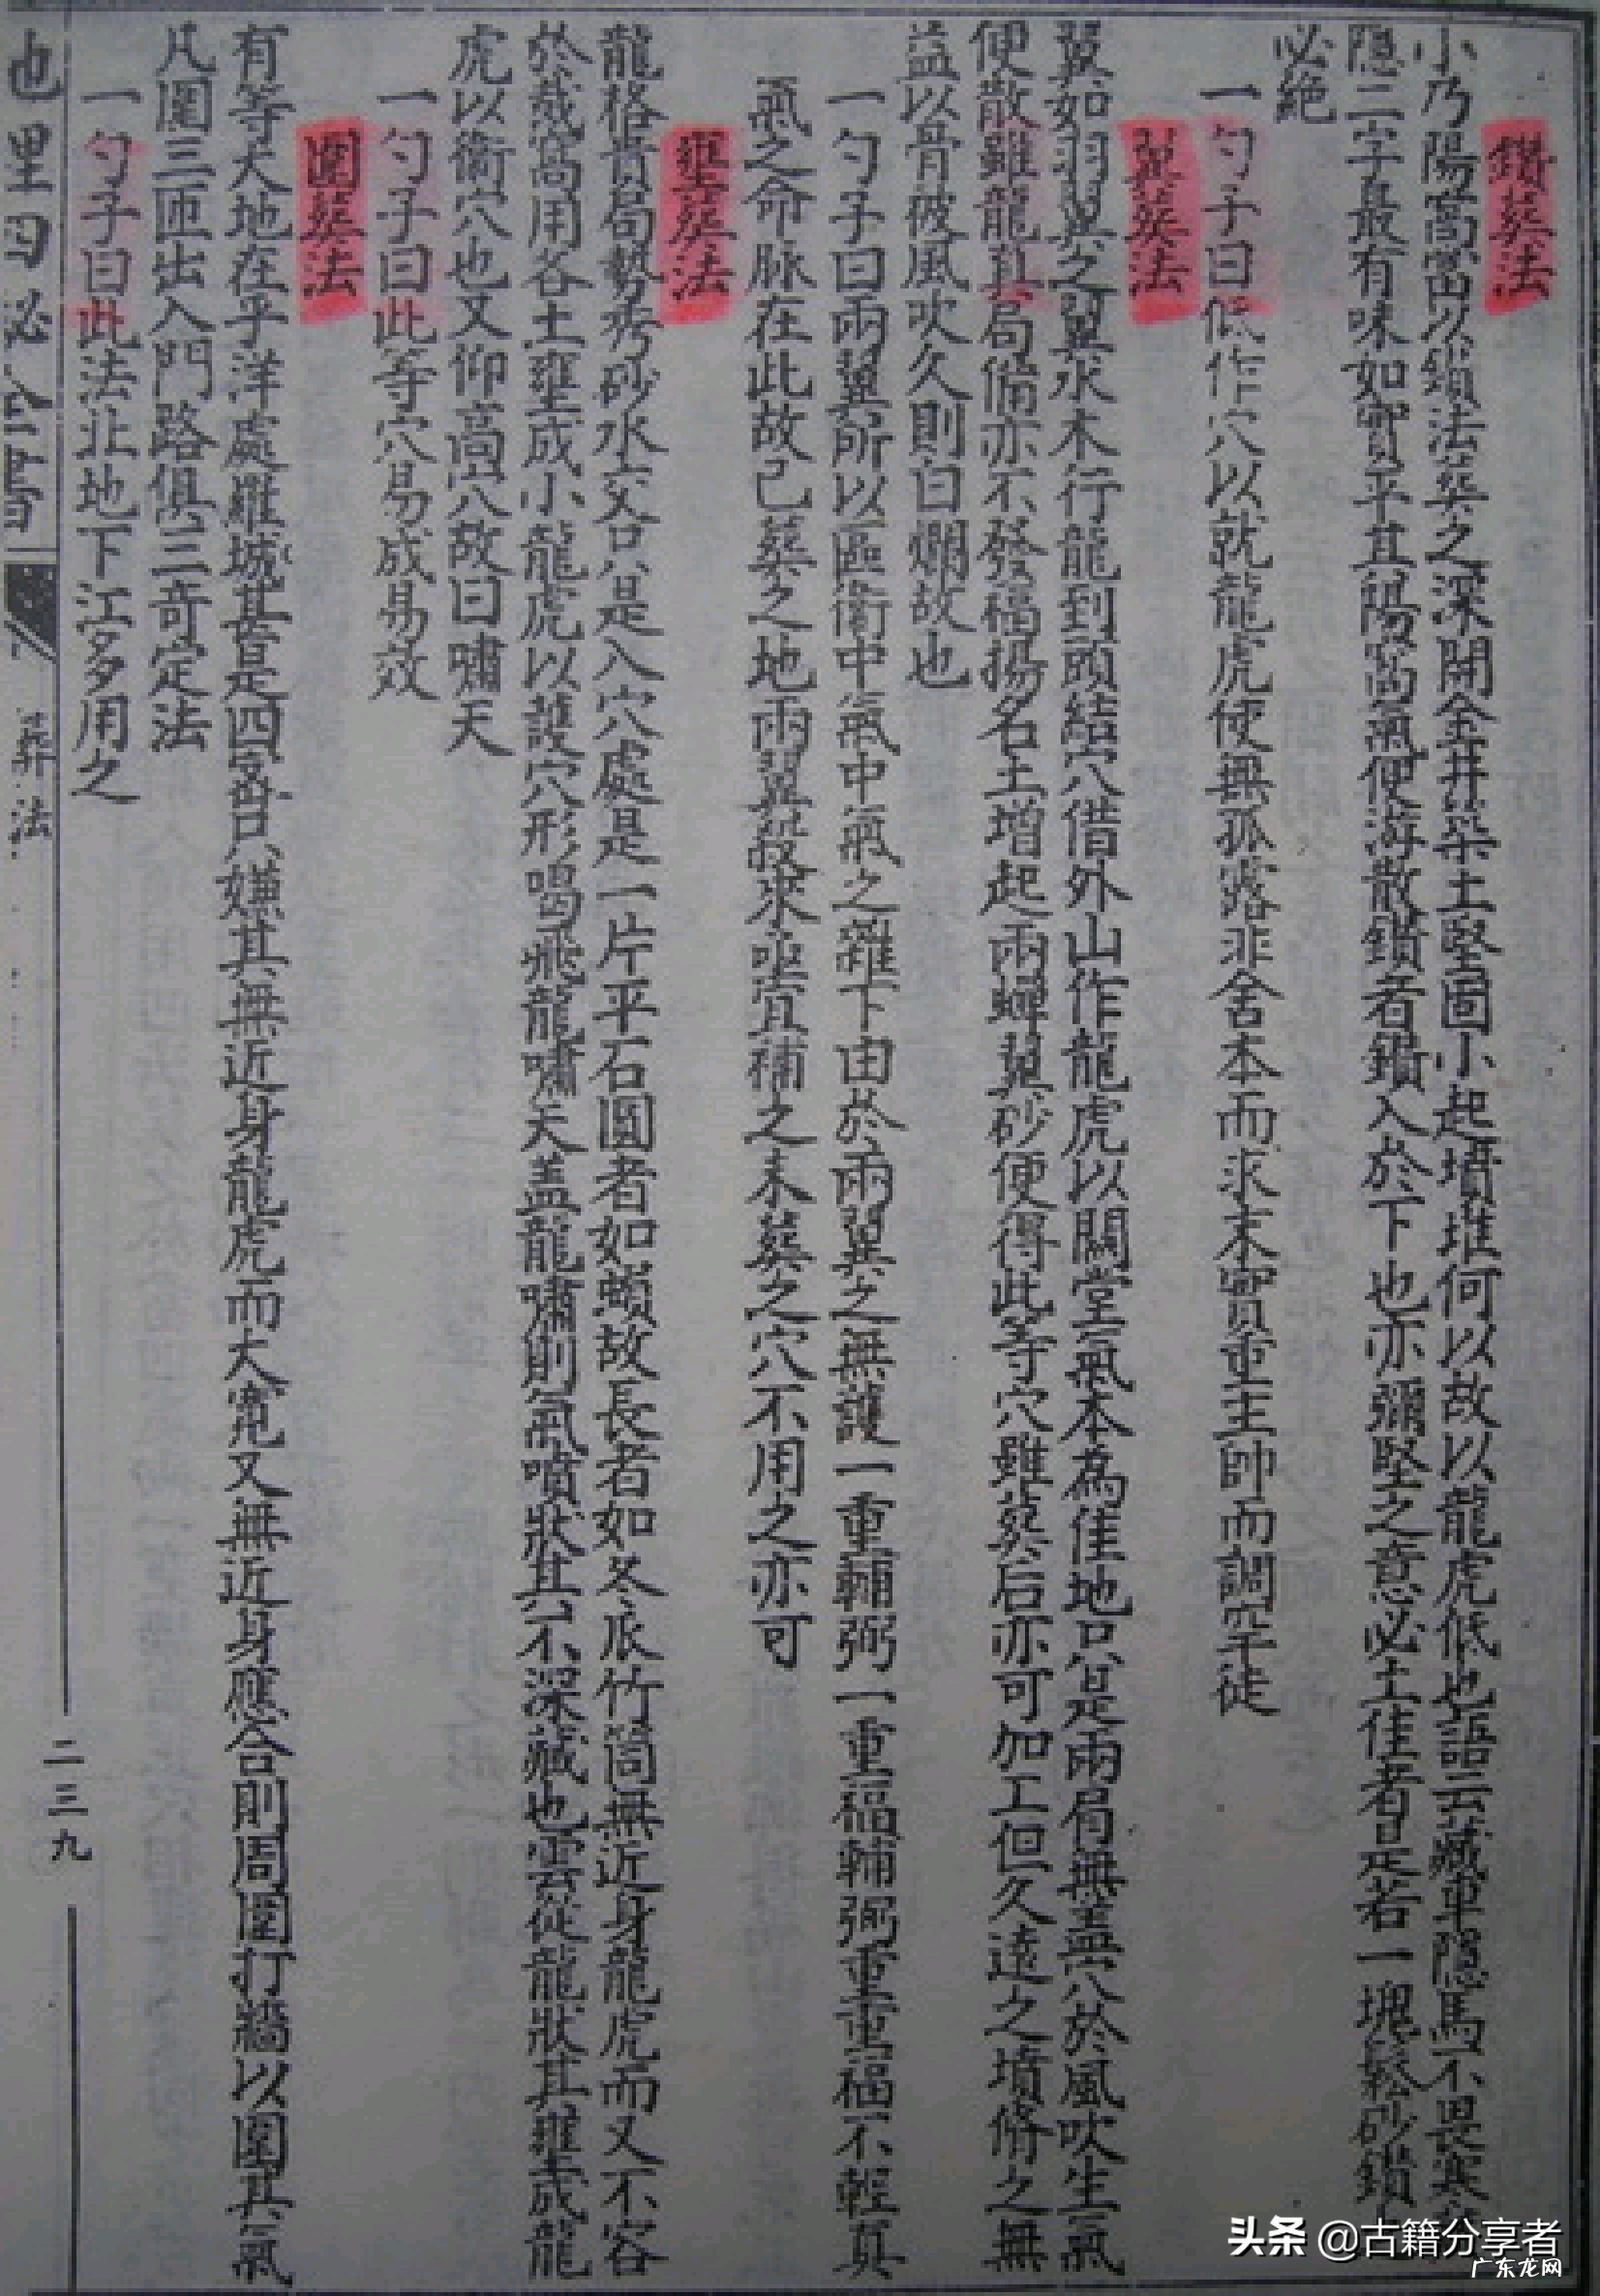 鑽葬法
小乃陽窩當以鎖法葬之深開金井築土堅固小起墳堆何以故以龍虎低也語云藏車隱馬不畏寒
隱二字最有味如實平其陽窩氣便海散鑽者鑽入於下也亦彌堅之意必土佳者是若一塊鬆砂鑽
必絕
一勺子曰低作穴以就龍虎使無孤露非舍本而求末實重主帥而調卒徒
翼葬法
翼如羽翼之翼水木行龍到頭結穴借外山作龍虎以關堂氣本為佳地只是兩肩無蓋穴於風吹生氣
便散雖龍真局備亦不發福揚名土增起兩蟬翼砂便得此等穴雖葬后亦可加工但久遠之墳脩之無
益以骨被風吹久則白爛故也
一勺子曰兩翼所以區衛中氣中氣之離下由於兩翼之無護一重輔弼一重福輔弼重重福不輕真
氣之命脉在此故已葬之地兩翼殺來亟宜補之未葬之穴不用之亦可
壅葬法
龍格貴局勢秀砂水交只是入穴處是一片平石圓者如蠑故長者如冬瓜竹筒無近身龍虎而又不容
於裁窩用客土壅成小龍虎以護穴形喝飛龍嘯天蓋龍嘯則氣噴狀其不深藏也雲從龍狀其壅成龍
虎以衛穴也又仰高穴故曰嘯天
一勺子曰此等穴易成易效
圍葬法
有等大地在乎洋處羅城甚是四密只嫌其無近身龍虎而大寬又無近身應合則周圍打牆以圍其氣
凡圍三匝出入門路俱三奇定法
一勺子曰此法北地下江多用之
地理囚必全書
葬法
二三九
头条 @古籍分享者
广东龙网